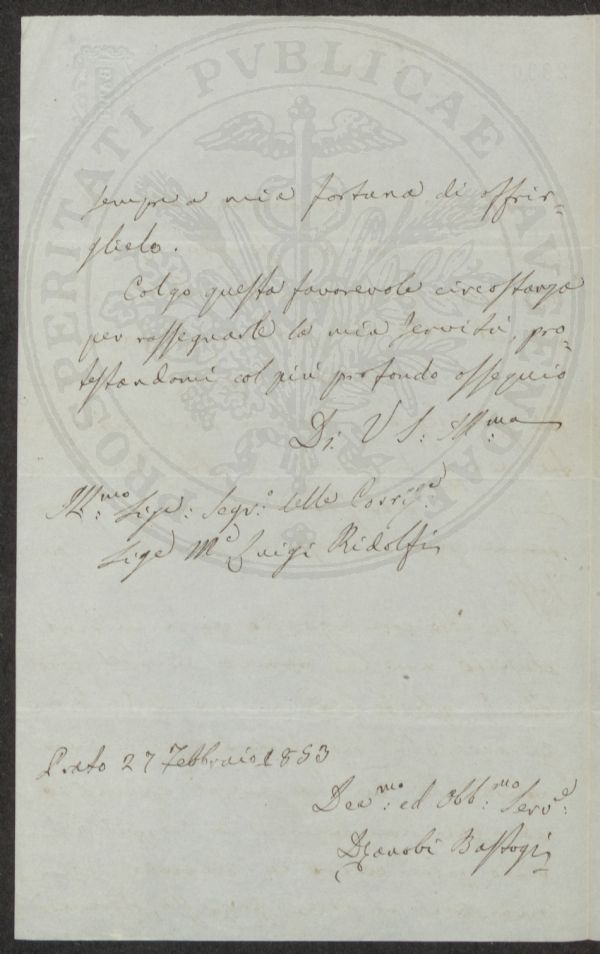 PROSPERITATI PVBLICAE AVGENDAE
sempre a mia fortuna di offrir=
glielo.
Colgo questa favorevole circostanza
per rassegnarle la mia servitù, pro=
testandomi col più profondo ossequio
Di V S: Ill:ma
Ill:mo Sigr: Segr:o delle Corrisp:e
Sige Me Luigi Ridolfi
Prato 27 Febbraio 1853
Dev:mo ed Obb:mo Serv:e
Zanobi Bastogi